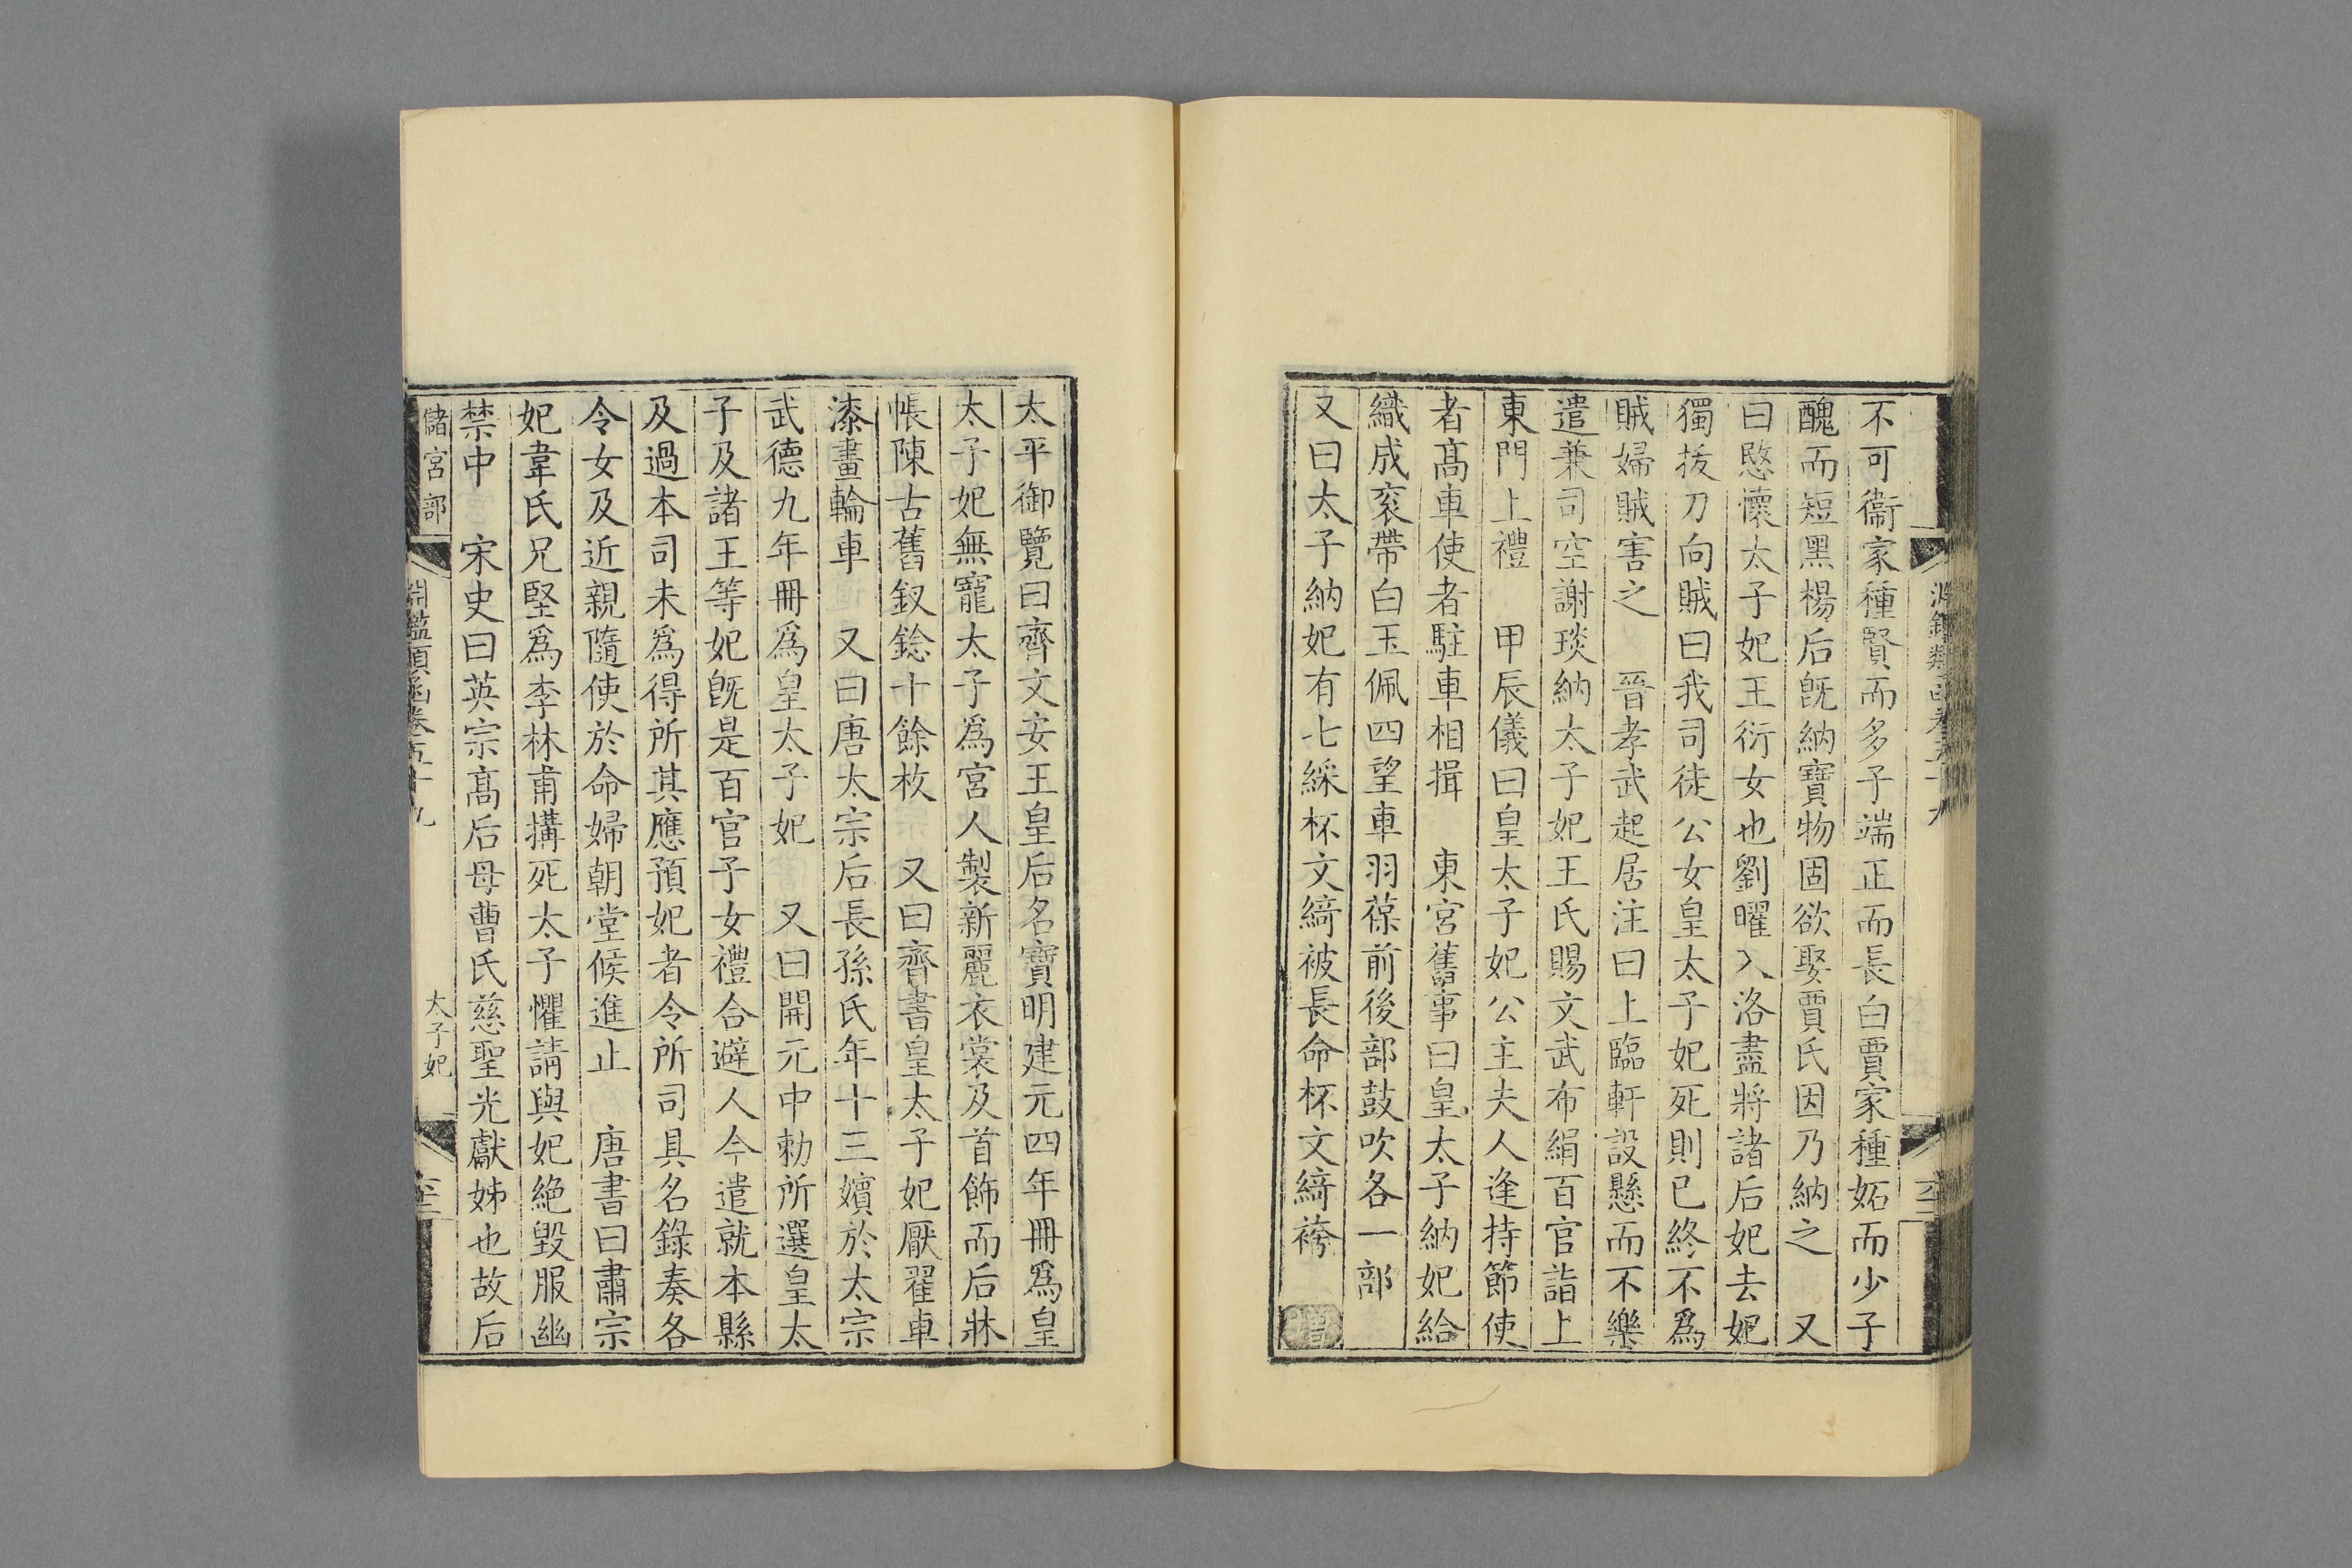 不可衞家種賢而多子端正而長白賈家種妬而少子
醜而短黑楊后旣納寶物固欲娶賈氏因乃納之 又
曰愍懷太子妃王衍女也劉曜入洛盡將諸后妃去妃
獨拔刀向賊曰我司徒公女皇太子妃死則已終不爲
賊婦賊害之 晉孝武起居注曰上臨軒設懸而不樂
遣兼司空謝琰納太子妃王氏賜文武布絹百官詣上
東門上禮 甲辰儀曰皇太子妃公主夫人逢持節使
者髙車使者駐車相揖 東宮舊事曰皇太子納妃給
織成衮帶白玉佩四望車羽葆前後部鼓吹各一部
又曰太子納妃有七綵杯文綺被長命杯文綺袴
增
太平御覽曰齊文安王皇后名寶明建元四年冊爲皇
太子妃無寵太子爲宮人製新麗衣裳及首飾而后牀
帳陳古舊釵鐶十餘枚 又曰齊書皇太子妃厭翟車
漆畫輪車 又曰唐太宗后長孫氏年十三嬪於太宗
武德九年冊爲皇太子妃 又曰開元中勅所選皇太
子及諸王等妃旣是百官子女禮合避人今遣就本縣
及過本司未爲得所其應預妃者令所司具名錄奏各
令女及近親隨使於命婦朝堂候進止 唐書曰肅宗
妃韋氏兄堅爲李林甫搆死太子懼請與妃絶毁服幽
禁中 宋史曰英宗髙后母曹氏慈聖光獻姊也故后
儲宮部
淵鑑類函卷五十九
太子妃